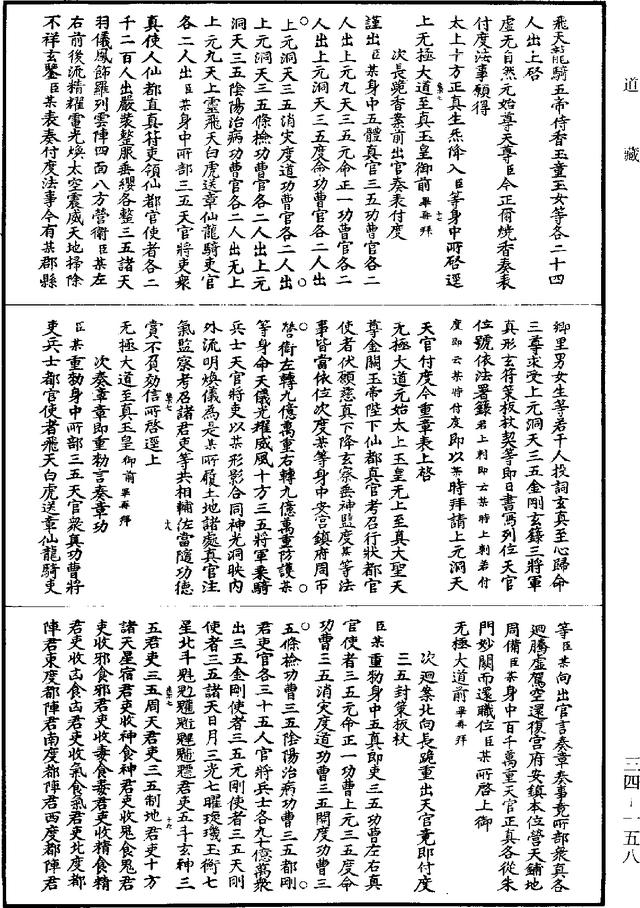 道藏
飛天龍騎五帝侍香玉童玉女等各二十四
人出上啓
虛无自然元始尊天尊臣今正爾燒香奏表
付度法事願得
太上十方正真生炁降入臣等身中所啓逕
上无極大道至真玉皇御前 畢再拜
次長跪香案前出官奏表付度
謹出臣某身中五體真官三五功曹官各二
人出上元九天三五元命正一功曹官各二
人出上元洞天三五度命功曹官各二人出
上元洞天三五消災度道功曹官各二人出
上元洞天三五條檢功曹官各二人出上元
洞天三五陰陽治病功曹官各二人出无上
上元九天上靈飛天白虎送章仙龍騎吏官
各二人出臣某身中所部三五天官將吏衆
真使人仙都直真符吏領仙都官使者各二
千二百人出嚴裝整服垂纓各整三五諸天
羽儀風飾羅列雲陣四面八方營衛臣某左
右前後流精耀電光煥太空震威天地掃除
不祥玄鑒臣某表奏付度法事今有某郡縣
鄉里男女生等若干人投詞玄真至心歸命
三尊求受上元洞天三五金剛玄籙三將軍
真形玄符策板杖契等即日書寫列位天官
位號依法署籙 君上刺即云某時上刺若付
度即云某時付度 即以某時拜請上元洞天
天官付度今重章表上啓
无極大道元始太上玉皇无上至真大聖天
尊金闕玉帝陛下仙都真官考召行狀都官
使者伏願慈真下降玄察垂神監度某等法
事皆當依位次度某等身中安宫鎮府周帀
營衛左轉九億萬重右轉九億萬重防護某
等身命天儀光耀威風十方三五將軍乘騎
兵士天官將吏以某形影合同神光洞映内
外流明煥儀為是某所履土地諸處真官注
氣監察考召諸君吏等共相輔佐當隨功德
賞不負効信所啓逕上
无極大道至真玉皇 御前 畢再拜
次奏章章即重勑言奏章功
臣某重勑身中所部三五天官衆真功曹將
吏兵士都官使者飛天白虎送章仙龍騎吏
等臣某向出官言奏章奏事竟所部衆真各
迴騰虛駕空還復宫府安鎮本位營天鋪地
周備臣某身中百千萬重天官正真各從朱
門妙闕而還職位臣某所啓上御
无極大道前 畢再拜
次迴案北向長跪重出天官竟即付度
三五封策板杖
臣某重勑身中五真即吏三五功曹左右真
官使者三五元命正一功曹上元三五度命
功曹三五消災度道功曹三五開度功曹三
五條檢功曹三五陰陽治病功曹三五都剛
君吏官各三十五人官將兵士各九十億萬衆
出三五金剛使者三五元剛使者三五天剛
使者三五諸天日月三光七曜璇璣玉衡七
星北斗君吏五斗玄神三
五君吏三五周天君吏三五制地君吏十方
諸天星宿君吏收神食神君吏收鬼食鬼君
吏收邪食邪君吏收毒食毒君吏收精食精
君吏收凶食凶君吏收氣食氣君吏北度都
陣君東度都陣君南度都陣君西度都陣君
三四—一五八